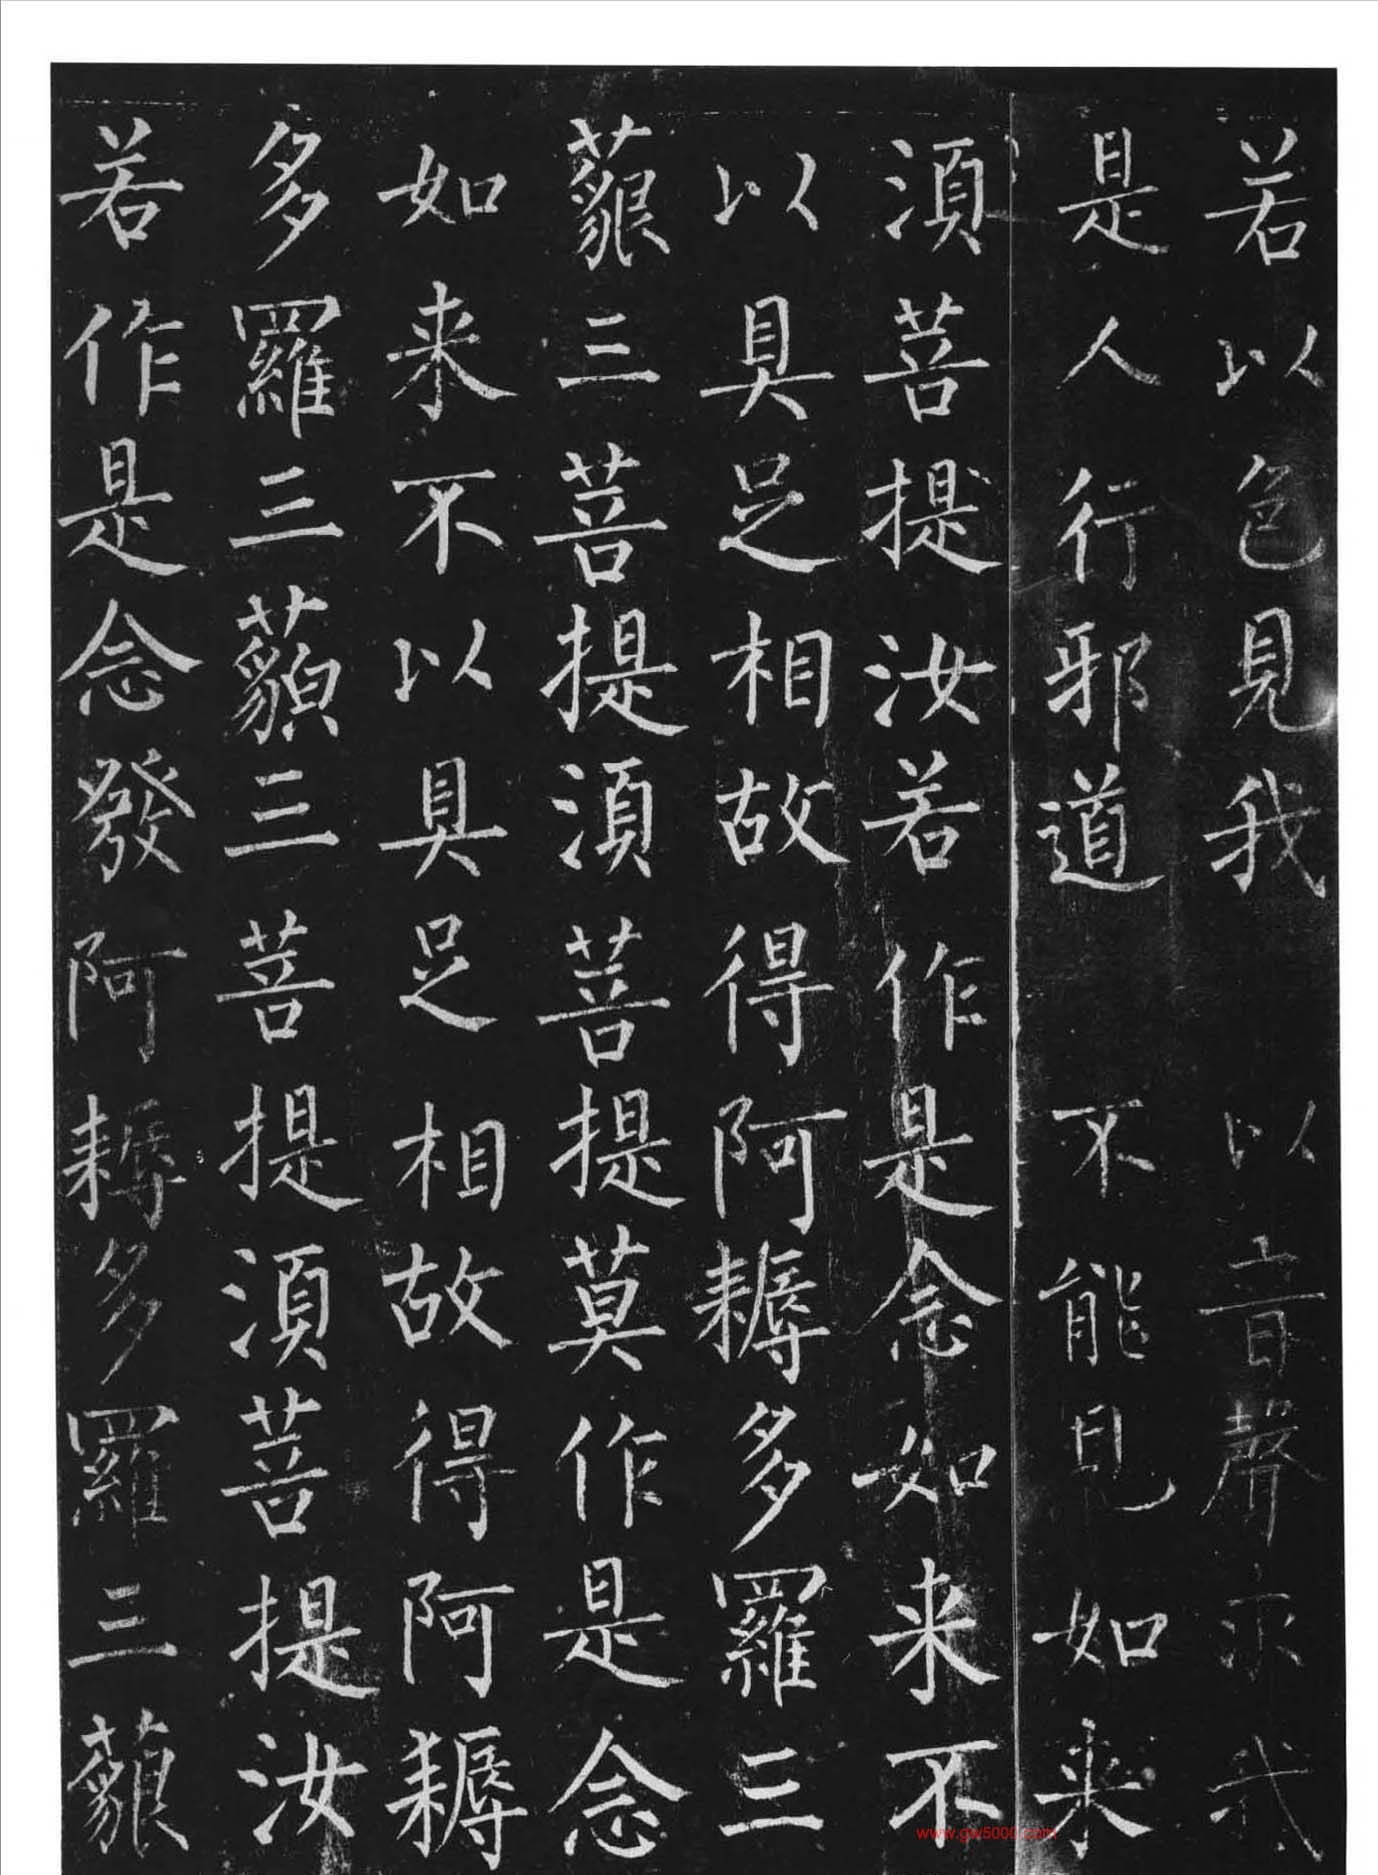 若以色見我　以音聲求我
是人行邪道　不能見如来
湏菩提汝若作是念如来不
以具足相故得阿耨多羅三
藐三菩提湏菩提莫作是念
如来不以具足相故得阿耨
多羅三藐三菩提湏菩提汝
若作是念發阿耨多羅三藐
www.gw5000.com